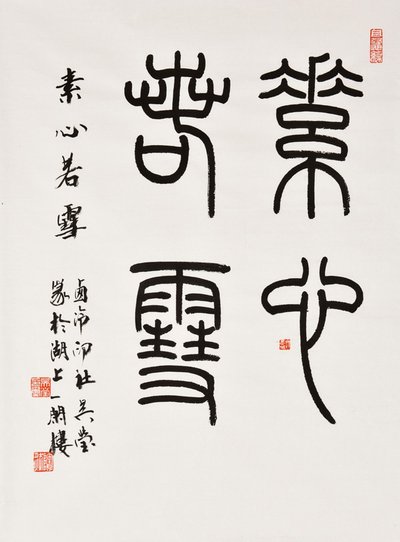 素心
若雪
素心若雪
西泠印社吴莹
篆於湖上一閑樓